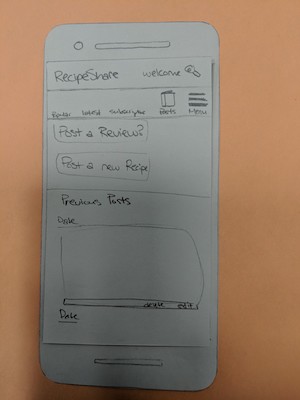 RecipeShare welcome
Popular latest subscribe Posts Menu
Post a Review?
Post a new Recipe
Previous Posts
Date
delete edit
Date